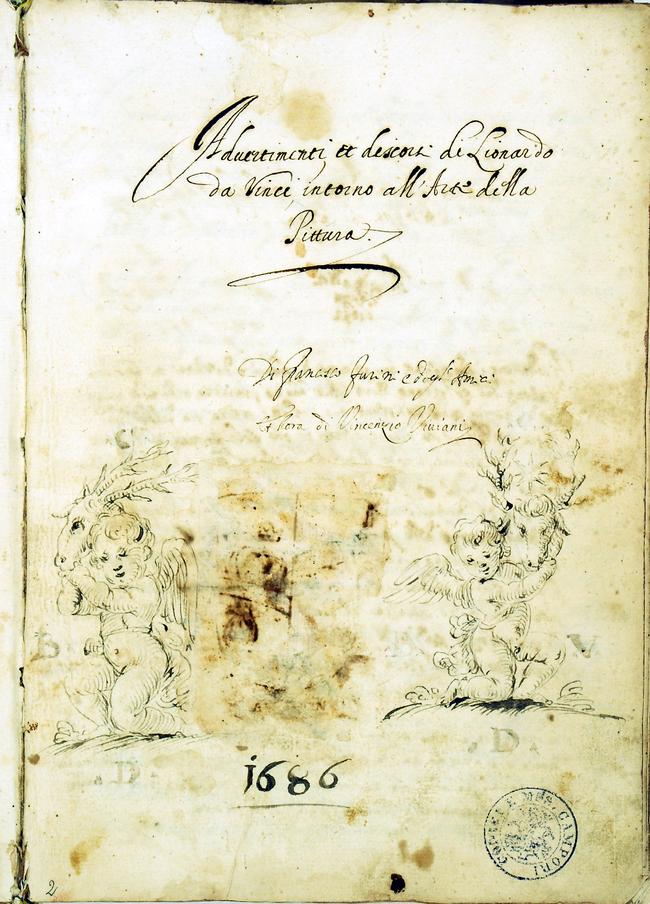 Advertimenti et descorsi de Lionardo
da Vinci intorno all'Arte della
Pittura.
Di Francesco Furini e degl' Amici
Et hora di Vincenzio Viviani
1686
CODICI E MSS. CAMPORI
2